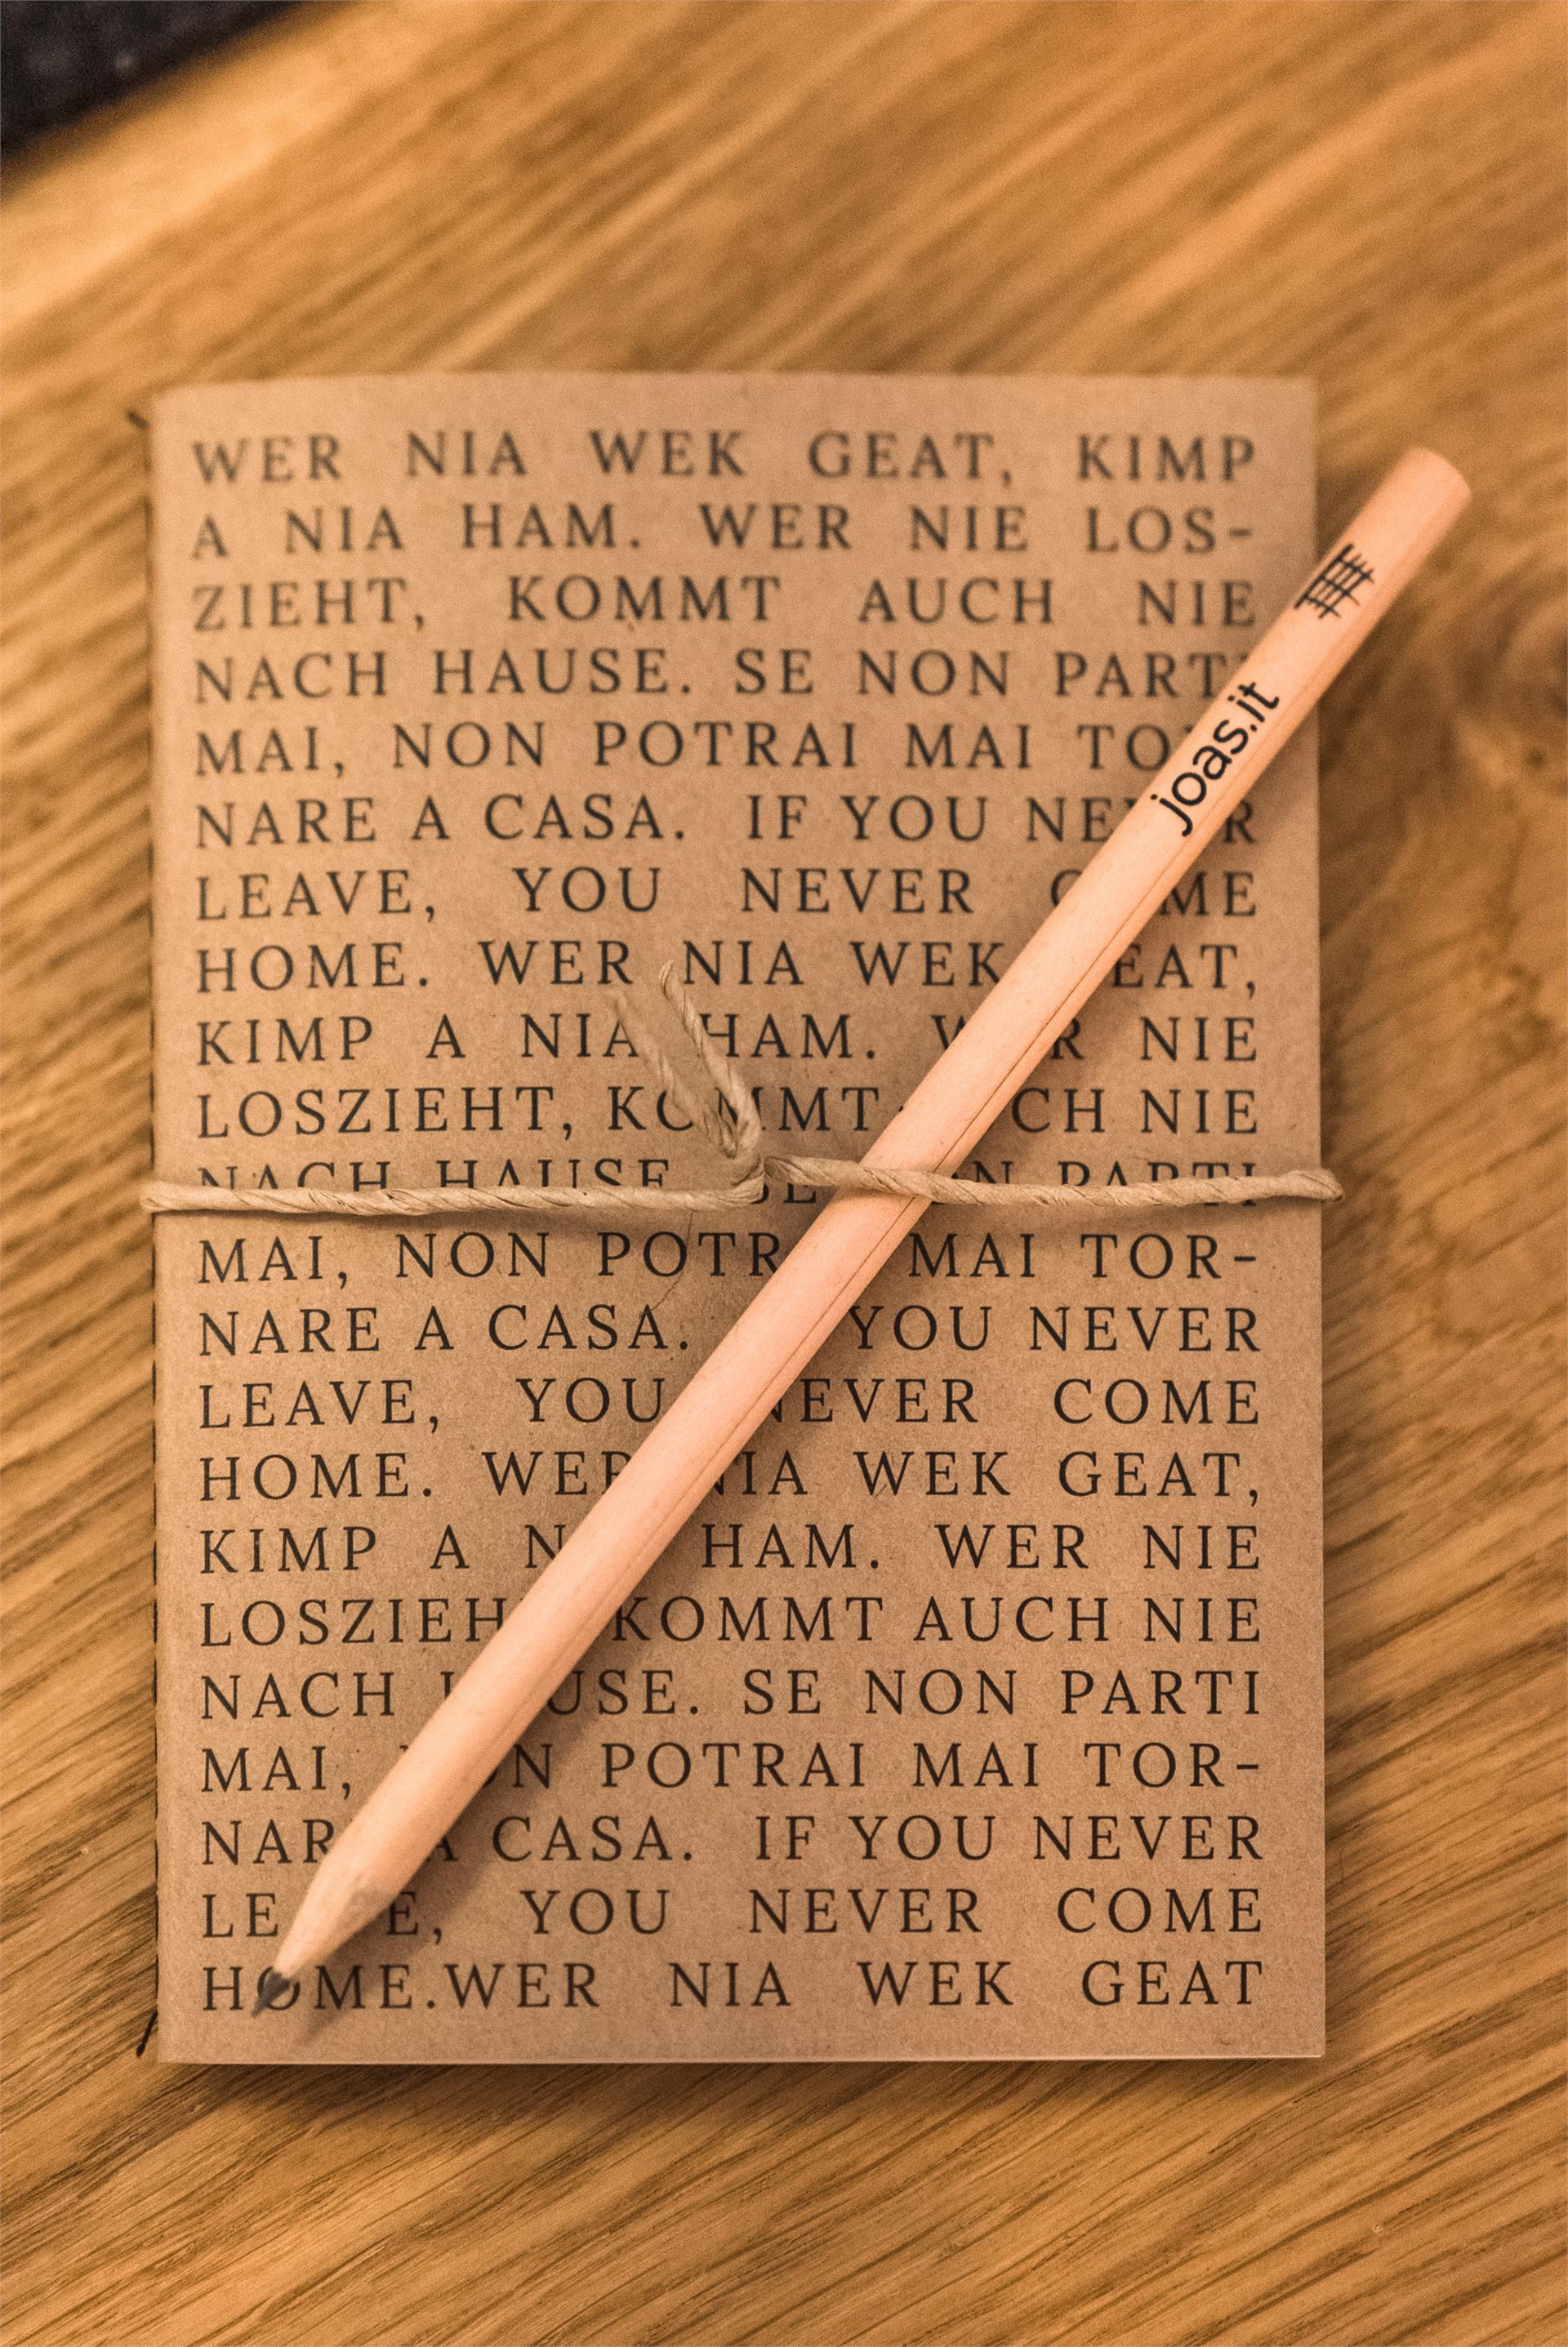 WER NIA WEK GEAT, KIMP
A NIA HAM. WER NIE LOS-
ZIEHT, KOMMT AUCH NIE
NACH HAUSE. SE NON PARTI
MAI, NON POTRAI MAI
NARE A CASA. IF YOU NEVER
LEAVE, YOU NEVER COME
HOME. WER NIA WEK GEAT,
KIMP A NIA HAM. WER NIE
LOSZIEHT, KOMMT AUCH NIE
NACH HAUSE. SE NON PARTI
MAI, NON POTRAI MAI TOR-
NARE A CASA. YOU NEVER
LEAVE, YOU NEVER COME
HOME. WER NIA WEK GEAT,
KIMP A NIA HAM. WER NIE
LOSZIEHT, KOMMT AUCH NIE
NACH HAUSE. SE NON PARTI
MAI, NON POTRAI MAI TOR-
NARE A CASA. IF YOU NEVER
LEAVE, YOU NEVER COME
HOME.WER NIA WEK GEAT
joas.it